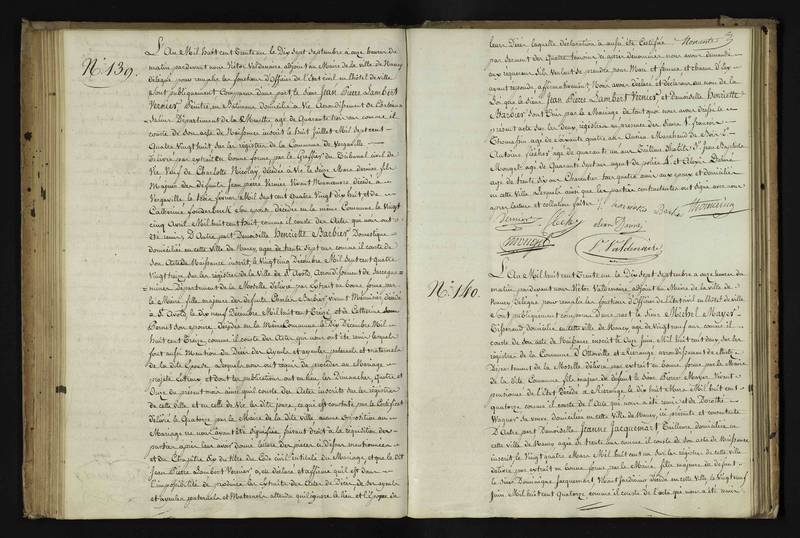 N.° 139.
L'An Mil huit cent Trente un le Dix Sept Septembre a onze heures du
matin pardevant nous Victor Valdenaire adjoint au Maire de la ville de Nancy
délégué pour remplir les fonctions d'Officier de l'Etat civil en l'hôtel de ville
Sont publiquement Comparus d'une part le Sieur Jean Pierre Lambert
Vernier Peintre en Bâtimens domicilié à Vic Arrondissement de Château
Salins Département de la Meurthe, agé de Quarante trois ans comme il
conste de son acte de Naissance inscrit le huit Juillet Mil Sept cent
Quatre Vingt huit sur les registres de la Commune de Vergaville
délivré par extrait en bonne forme, par le Greffier du Tribunal civil de
Vic Veuf de Charlotte Nicolay, décédée à Vic le
Majeur des défunts Jean pierre Vernier Vivant Manoeuvre décédé à
Vergaville le Mil Sept cent Quatre Vingt dix huit, et de
Catherine son épouse, décédée en la même Commune le Vingt
cinq Avril Mil huit cent huit comme il conste des Actes qui nous ont
été remis; D'Autre part Demoiselle Henriette Barbier Domestique
domiciliée en cette Ville de Nancy agée de trente sept ans comme il conste de
son Acte de Naissance inscrit le Vingt cinq Décembre Mil Sept cent Quatre
Vingt treize sur les registres de la Ville de St. Avold, Arrondissement de Sarregue
mines Département de la Moselle délivré par Extrait en bonne forme par
le Maire, fille majeure des défunts Barbier Vivant décédé
à St. Avold, le dix neuf Décembre Mil huit cent Treize et de Catherine
son épouse, décédée en la même Commune le Dix Décembre Mil
huit cent Treize, comme il conste des Actes qui nous ont été remis, lesquels
font aussi Mention du Décès des Ayeuls et ayeules paternels et maternels
de la dite Epouse, Lesquels nous ont requis de procéder au Mariage
projeté Entreux et dont les publications ont eu lieu les Dimanches, Quatre et
Onze du présent mois ainsi qu'il conste des Actes inscrits sur les registres
de cette ville et en celle de Vic les dits jours ce qui est constaté par le Certificat
délivré le Quatorze par le Maire de la dite Ville aucune Opposition au
Mariage ne nous ayant été signifiée, faisant droit à la réquisition des
parties après leur avoir donné lecture des pièces ci dessus mentionnées
et du Chapitre Six du titre du Code civil intitulé du Mariage, et que le dit
Jean Pierre Lambert Vernier a, déclaré et affirmé qu'il est dans
l'impossibilité de produire les extraits des Actes de Décès de ses ayeuls
et ayeules paternels et Maternels attendu qu'il ignore le lieu et l'époque de
leurs Décès laquelle déclaration a aussi été Certifiée
par serment des Quatre témoins ci après dénommés, nous avons demandé
aux requérans s'ils Veulent se prendre pour Mari et femme, et chacun d'Eux
ayant répondu affirmativement Nous avons déclaré et déclarons au nom de la
Loi que le Sieur Jean Pierre Lambert Vernier et Demoiselle Henriette
Barbier Sont Unis par le Mariage de tout quoi nous avons dressé le
présent acte sur les deux registres en présence des Sieurs St. francois
Thomassin agé de Soixante quatre ans Ancien Marchand de Bois; St.
Antoine agé de quarante un ans Tailleur d'habits; St. Jean Baptiste
Mougel agé de Quarante Sept ans agent de police, et Alexis Daime
agé de trente six ans Charretier tous quatre amis aux époux et domiciliés
en cette Ville Lesquels ainsi que les parties contractantes ont Signé avec nous
après lecture et collation faites
Vernier
Barbier
Thomassin
alexis Daime
mougel
Vr. Valdenaire
N.° 140.
L'An Mil huit cent Trente un le Dix Sept Septembre a onze heures du
matin, pardevant nous Victor Valdenaire adjoint au Maire de la ville de
Nancy Délégué pour remplir les fonctions d'Officier de l'Etat civil en l'hôtel de ville
Sont publiquement comparus d'une part le Sieur Michel Mayer
Tisserand domicilié en cette ville de Nancy agé de Vingt neuf ans, comme il
conste de son acte de Naissance inscrit le Onze Juin, Mil huit cent deux, sur les
registres de la Commune D'Ottonville arrondissement de Metz
Département de la Moselle, délivré par extrait en bonne forme, par le Maire
de la dite Commune fils majeur de défunt le Sieur Pierre Mayer Vivant
pensionné de l'Etat Décédé à le dix huit Mars Mil huit cent
quatorze comme il conste de l'acte qui nous a été remis et de Dorothée
Wagner sa veuve domiciliée en cette Ville de Nancy, ici présente et consentante
D'Autre part Demoiselle Jeanne Jacquemart Tailleuse domiciliée en
cette ville de Nancy agée de trente ans comme il conste de son acte de Naissance
inscrit le Vingt quatre Mars Mil huit cent un sur les registres de cette ville
délivré par extrait en bonne forme par le Maire, fille majeure de défunt
le Sieur Dominique Jacquemart Vivant Jardinier décédé en cette Ville le Vingt neuf
Juin Mil huit cent Quatorze comme il conste de l'acte qui nous a été remis